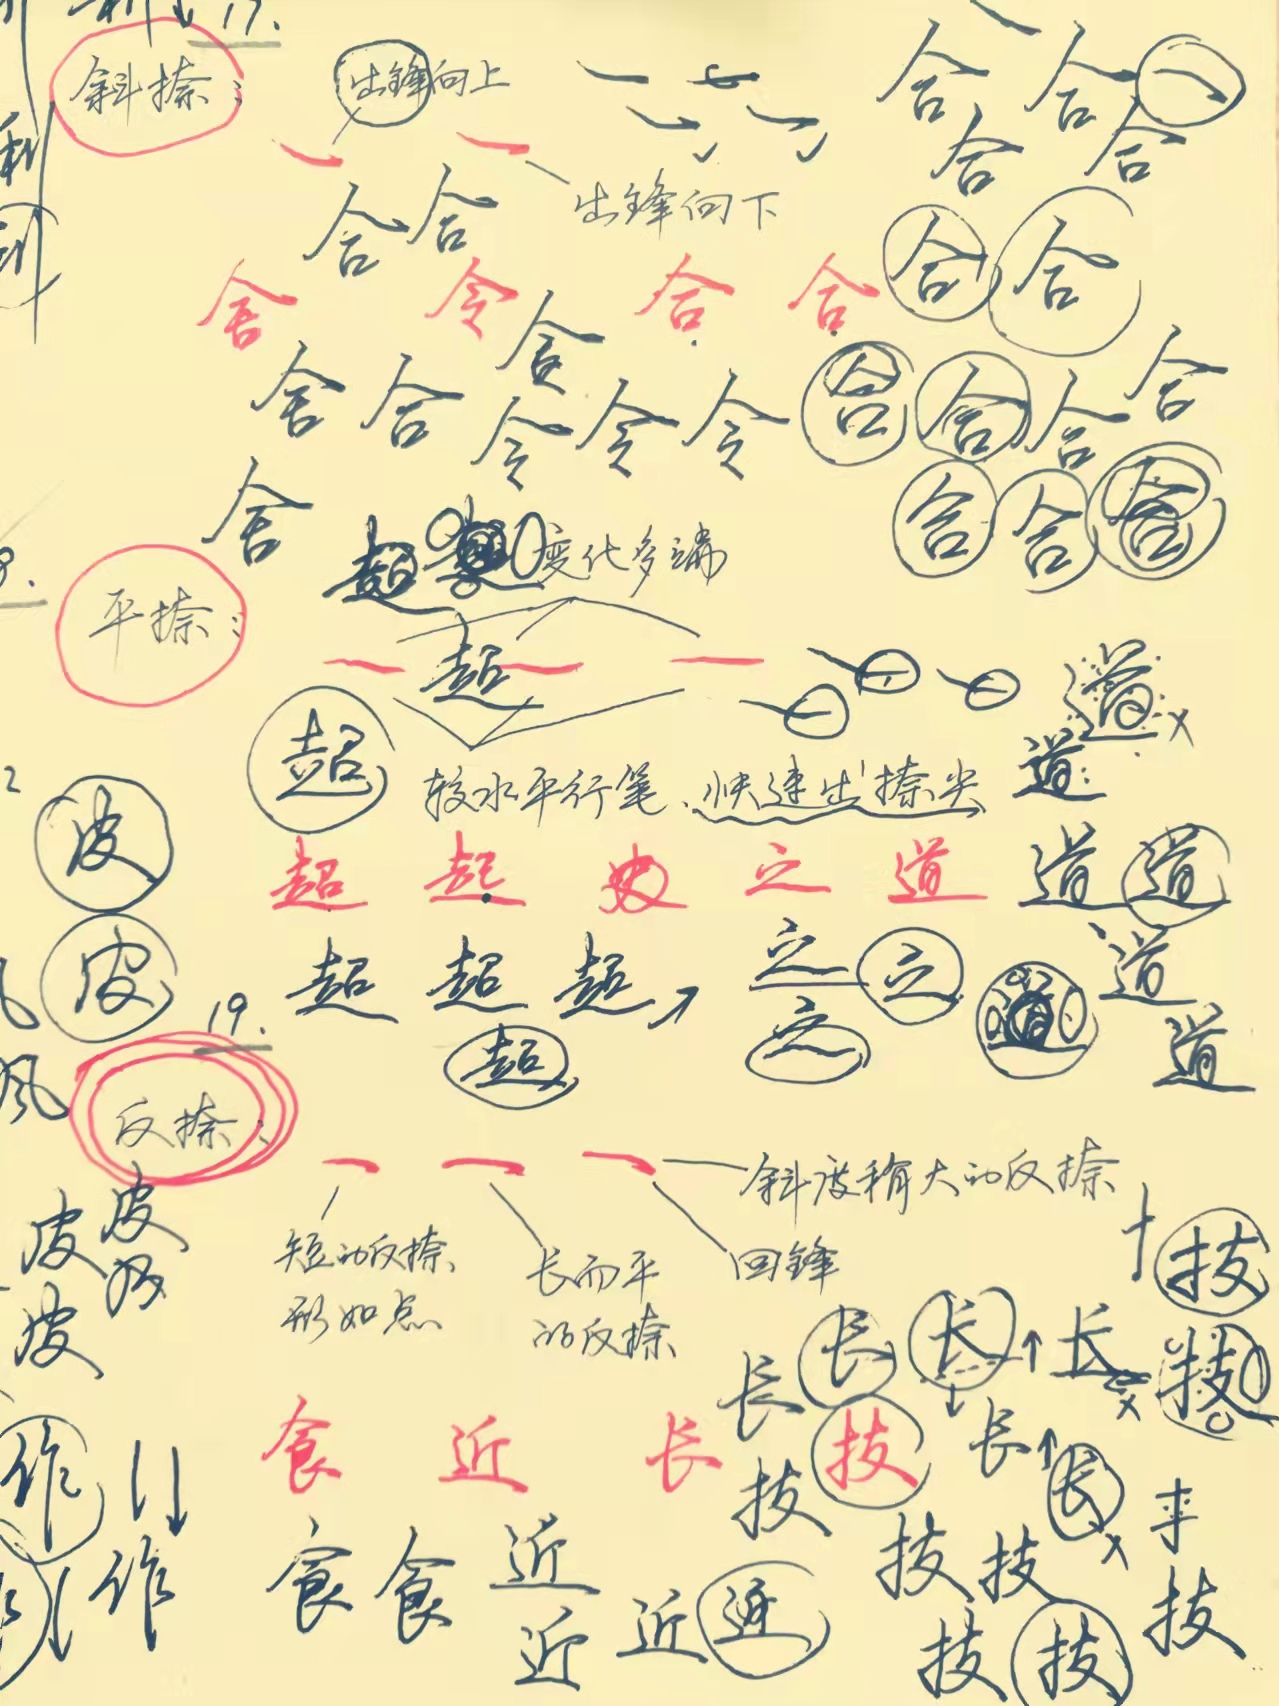 17.
斜捺：
出锋向上
合 合
合 合
出锋向下
合 合
合 合
舍 令 合 合
食
舍 合 令 令 令
合 合 合 合
舍
合 合 合
超
变化多端
平捺：
超
道
超
较水平行笔、快速出捺尖
道
皮
超 起 之 道 道 道
皮
超 超 超 之 之 道
超 之 道 道
19.
反捺：
斜度稍大的反捺
短的反捺
形如点
长而平
的反捺
回锋
皮 皮
皮
技
长 长 长 长
技
食 近 长 技 长 长
作
技
食 食 近 技 技
作
近 近 近 技 技 技